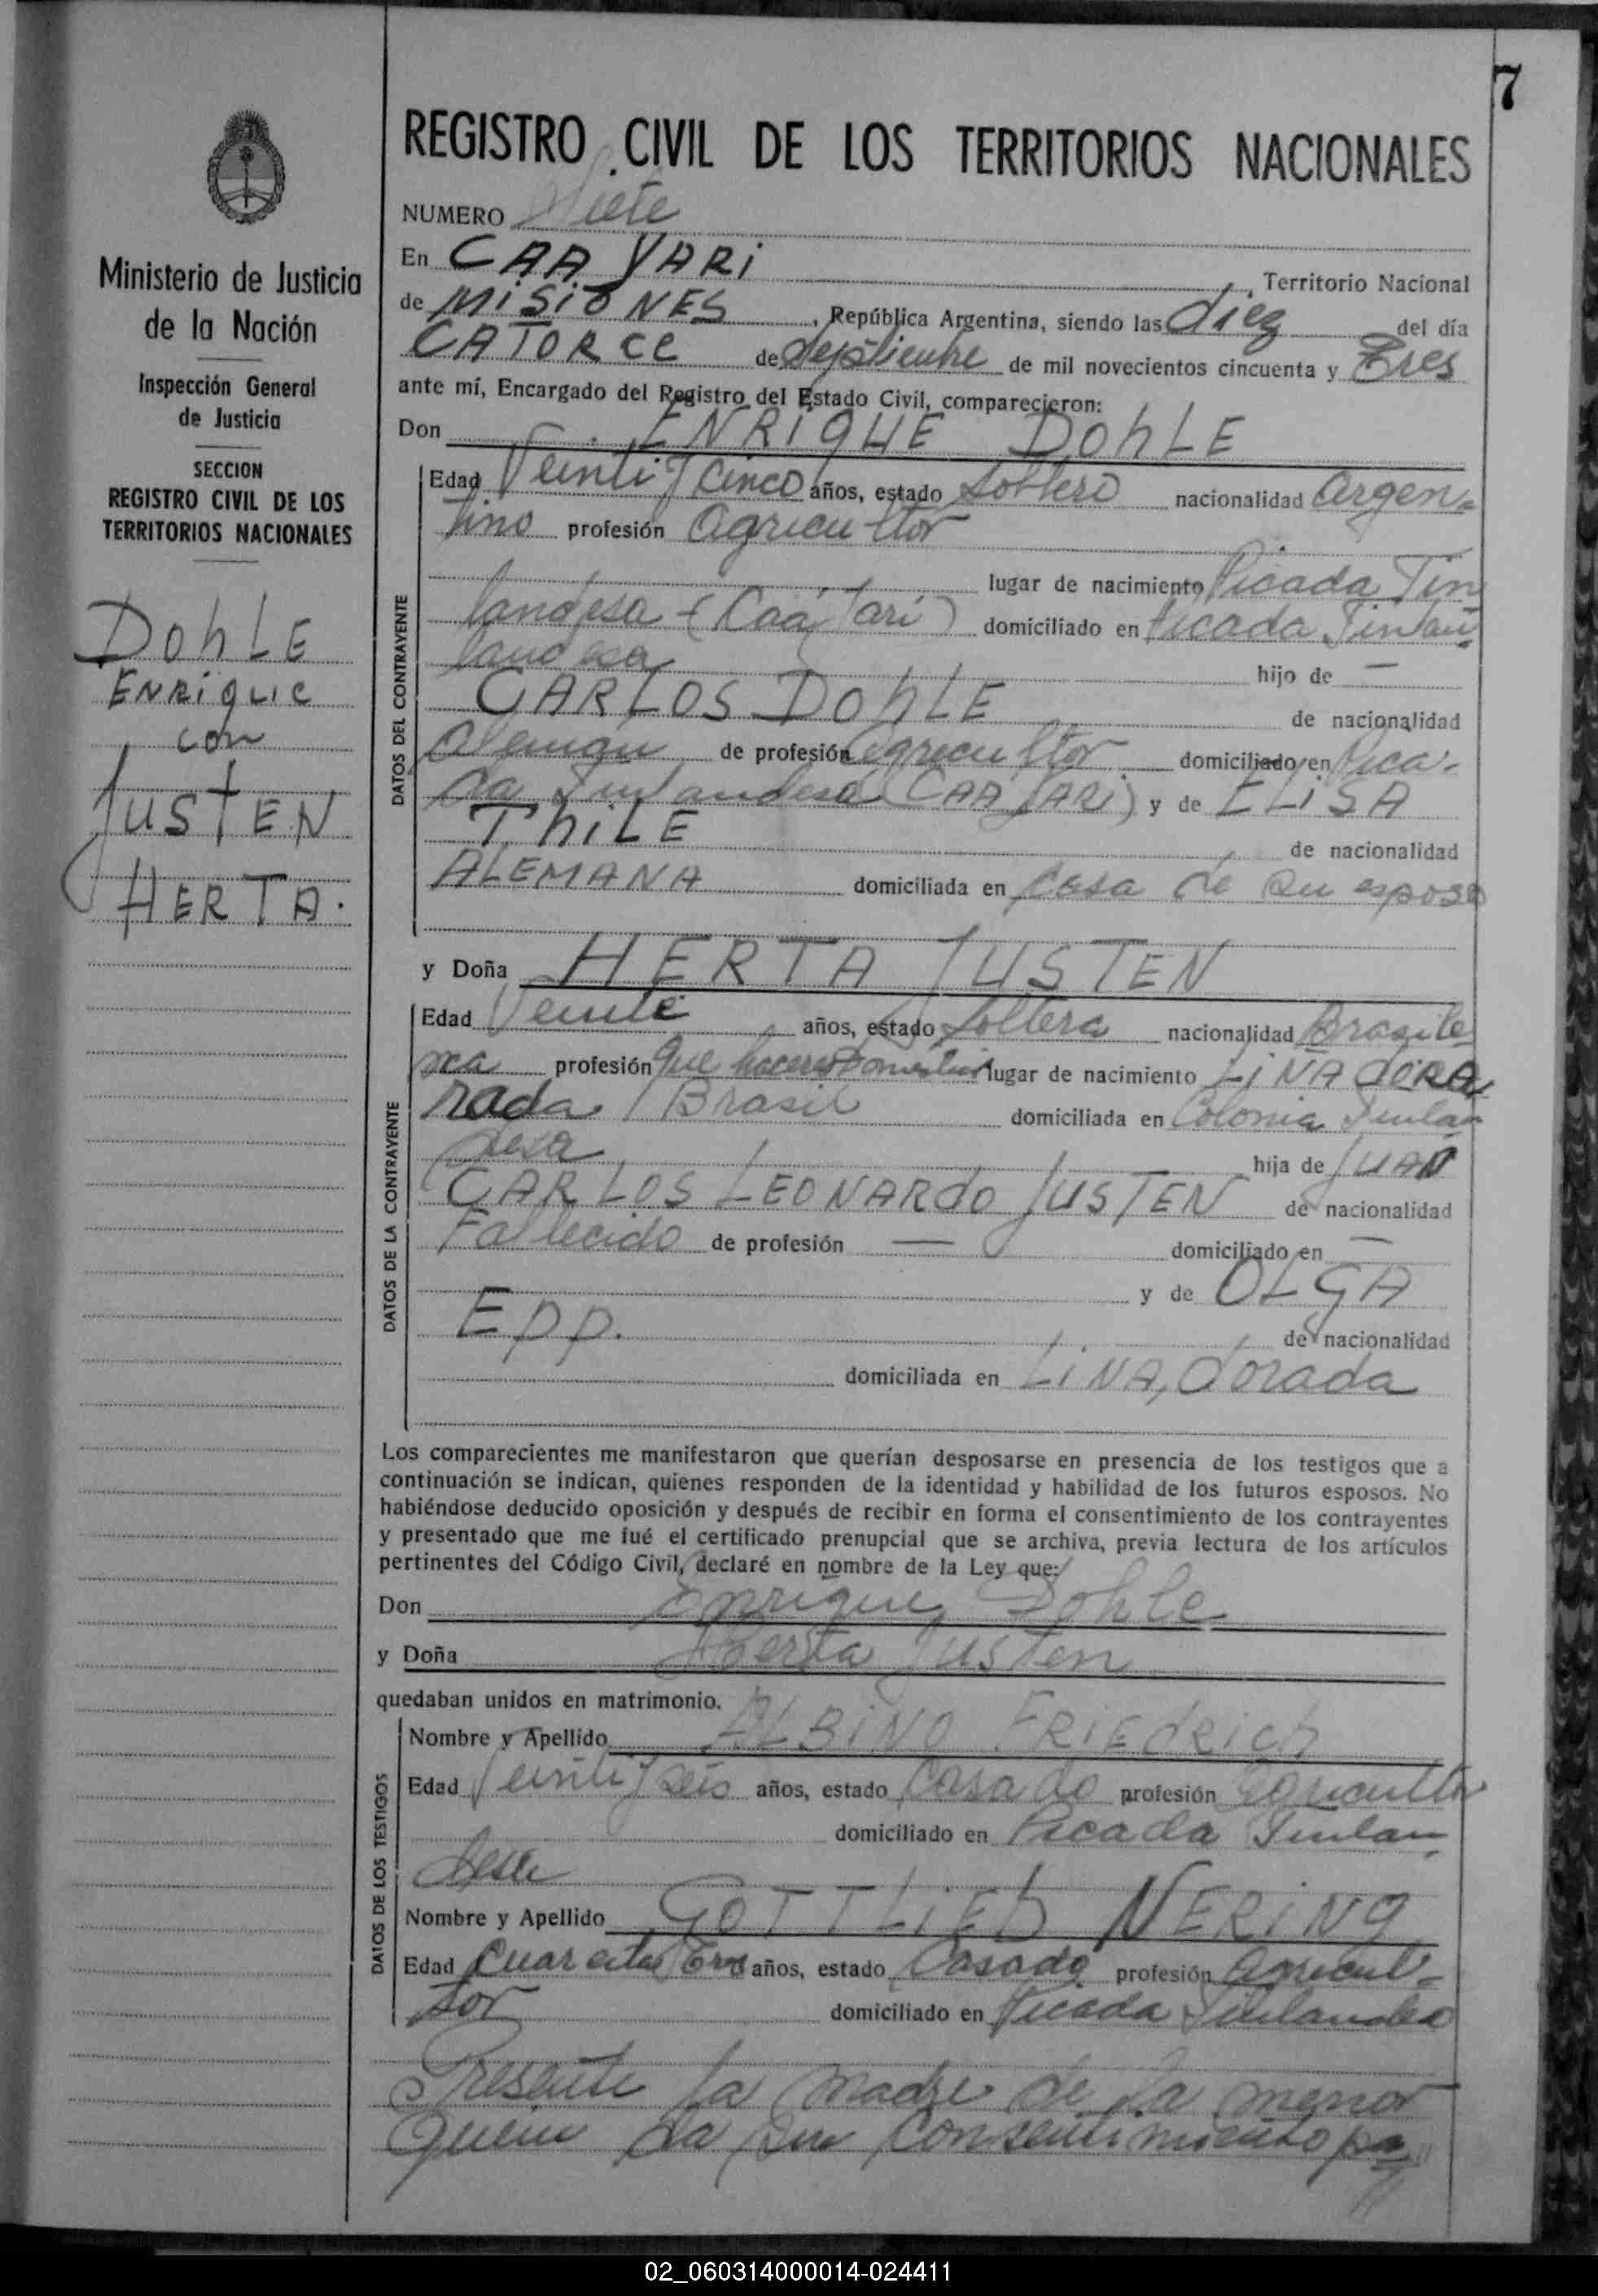 7
REGISTRO CIVIL DE LOS TERRITORIOS NACIONALES
Ministerio de Justicia
de la Nación
Inspección General
de Justicia
SECCION
REGISTRO CIVIL DE LOS
TERRITORIOS NACIONALES
DohLE
ENRiquE
con
JUSTEN
HERTA.
NUMERO Siete
En CAA YARi, Territorio Nacional
de MiSiONES, República Argentina, siendo las diez del día
CATORCE de Septiembre de mil novecientos cincuenta y Tres
ante mí, Encargado del Registro del Estado Civil, comparecieron:
Don ENRiqUE DohLE
DATOS DEL CONTRAYENTE
Edad Veinti y cinco años, estado Soltero nacionalidad Argen-
tino profesión Agricultor
lugar de nacimiento Picada Fin
landesa (Caá Yarí) domiciliado en Picada Finlan
landesa hijo de —
CARLOS DohLE de nacionalidad
Aleman de profesión Agricultor domiciliado en Pica-
da Finlandesa (CAA YARi) y de ELiSA
ThiLE de nacionalidad
ALEMANA domiciliada en Casa de su esposo
y Doña HERTA JUSTEN
DATOS DE LA CONTRAYENTE
Edad Veinte años, estado Soltera nacionalidad Brasile
ña profesión Que haceres Domesticos lugar de nacimiento LiNA dORA
rada Brasil domiciliada en Colonia Finlan
desa hija de JUAN
CARLOS LEONARdO JUSTEN de nacionalidad
Fallecido de profesión — domiciliado en —
y de OLGA
Epp. de nacionalidad
domiciliada en LiNA, dorada
Los comparecientes me manifestaron que querían desposarse en presencia de los testigos que a
continuación se indican, quienes responden de la identidad y habilidad de los futuros esposos. No
habiéndose deducido oposición y después de recibir en forma el consentimiento de los contrayentes
y presentado que me fué el certificado prenupcial que se archiva, previa lectura de los artículos
pertinentes del Código Civil, declaré en nombre de la Ley que:
Don Enrique Dohle
y Doña Herta Justen
quedaban unidos en matrimonio.
DATOS DE LOS TESTIGOS
Nombre y Apellido ALBiNO FRiEdRich
Edad Veinti y seis años, estado Casado profesión Agricultor
domiciliado en Picada Finlan
desa
Nombre y Apellido GOTTLiEb NERiNg
Edad Cuarenta y Tres años, estado Casado profesión Agricul-
tor domiciliado en Picada Finlandesa
Presente la madre de la menor
quien da su consentimiento pa
02_060314000014-024411